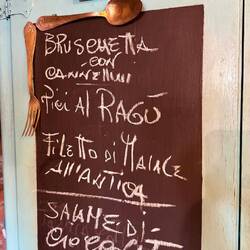 BRUSCHETTA
CON
CANNELLINI
PICI AL RAGÙ
FILETTO DI MAIALE
ALL'ANTICA
SALAME DI